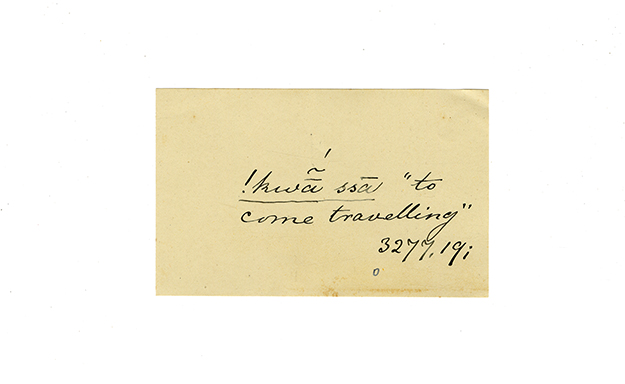 !kwā̃́ ssā "to
come travelling"
3277, 19;